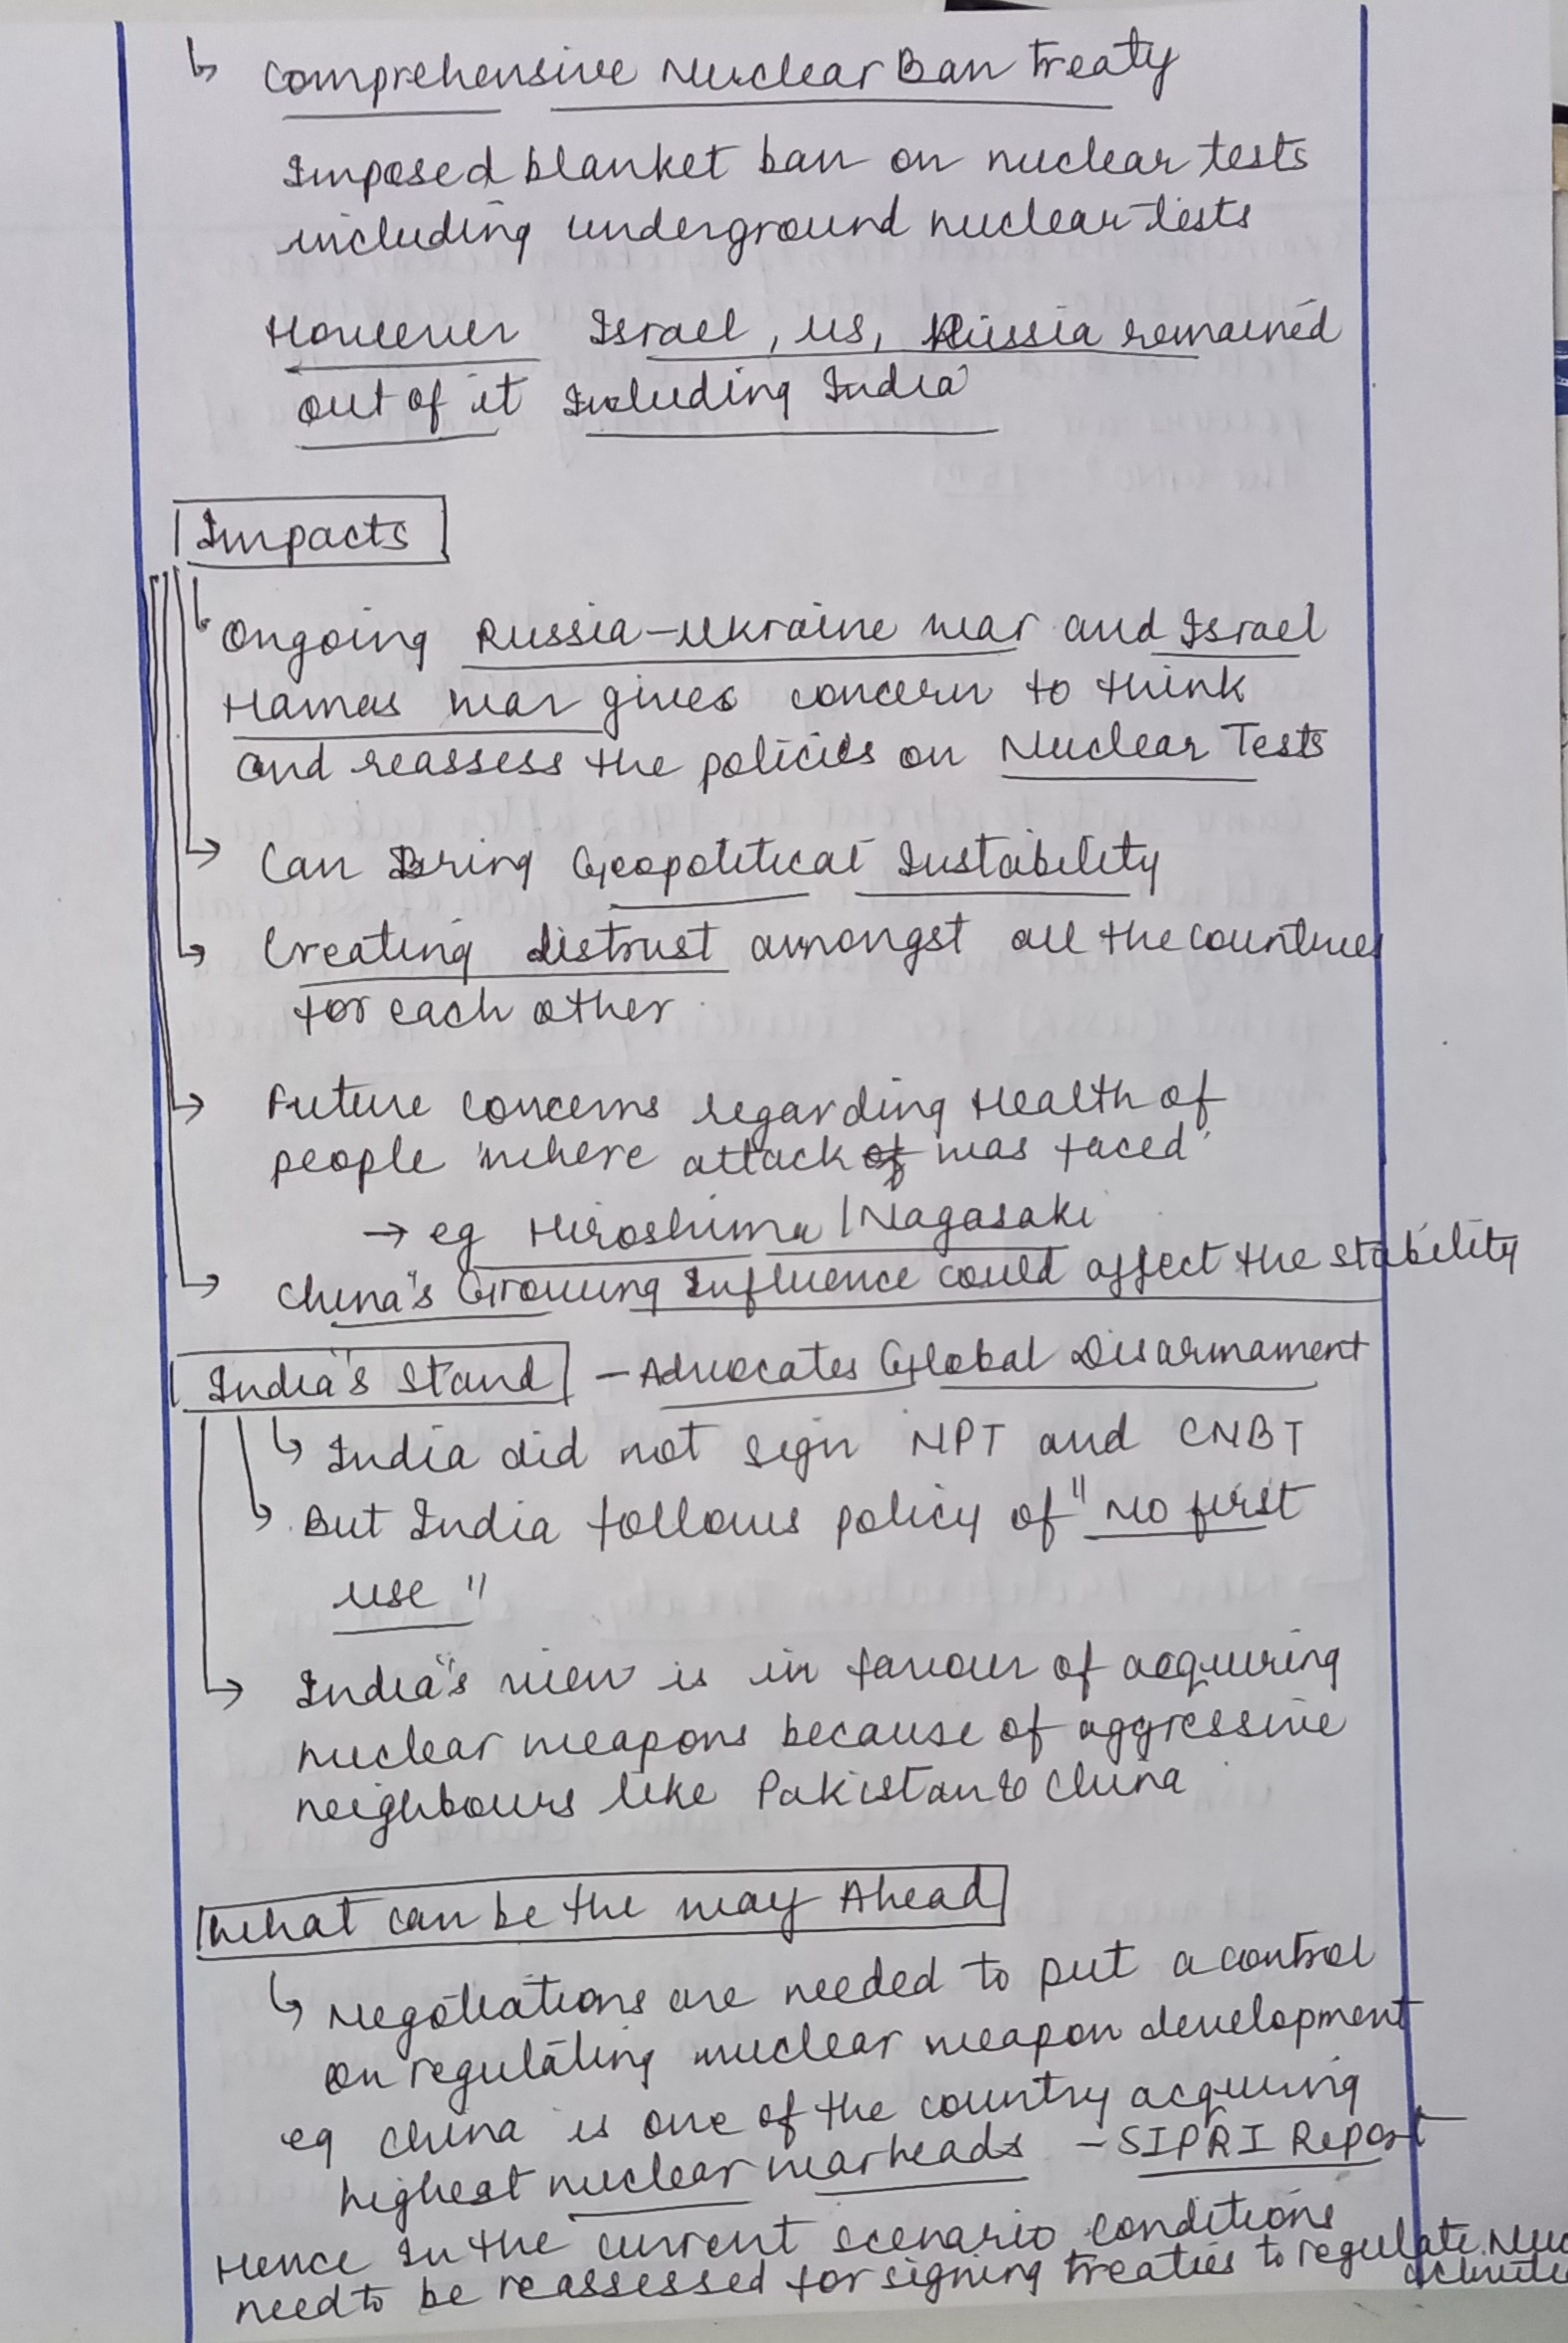 Comprehensive Nuclear Ban Treaty
Imposed blanket ban on nuclear tests
including underground nuclear tests
However Israel, US, Russia remained
out of it Including India
Impacts
Ongoing Russia-Ukraine war and Israel
Hamas war gives concern to think
and reassess the policies on Nuclear Tests
Can Bring Geopolitical Instability
Creating distrust amongst all the countries
for each other
Future concerns regarding Health of
people where attack of was faced
→ eg Hiroshima / Nagasaki
China's Growing Influence could affect the stability
India's Stand - Advocates Global Disarmament
India did not sign NPT and CNBT
But India follows policy of "No first
use"
India's view is in favour of acquiring
nuclear weapons because of aggressive
neighbours like Pakistan & China
What can be the way Ahead
Negotiations are needed to put a control
on regulating nuclear weapon development
eg China is one of the country acquiring
highest nuclear warheads - SIPRI Report
Hence In the current scenario conditions
need to be reassessed for signing treaties to regulate